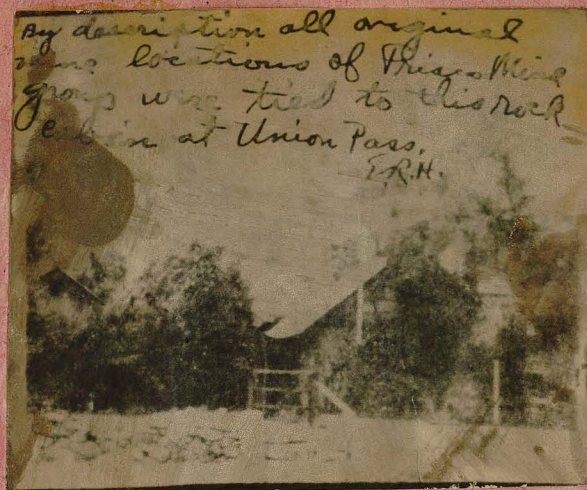 By description all original
locations of Mine
group were tied to this rock
cabin at Union Pass.
T.R.H.